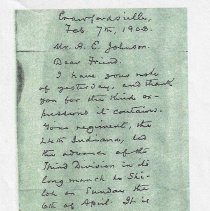 Crawfordsville,
Feb 7th, 1902.
Mr. A. C. Johnson.
Dear Friend.
I have your note
of yesterday, and thank
you for the kind ex-
pressions it contains.
Your regiment, the
24th Indiana, led
the advance of the
Third Division in its
long march to Shi-
loh on Sunday the
6th of April. It is